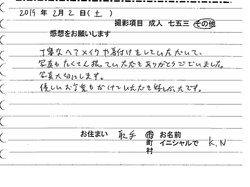 2019年 2月 2日（土）
撮影項目 成人 七五三 その他
感想をお願いします
丁寧なヘアメイクや着付けをしていただいて、
写真もたくさん撮っていただきありがとうございました。
写真大切にします。
優しいお言葉もかけていただき嬉しかったです。
お住まい 取手 市町村 お名前 イニシャルで K.N